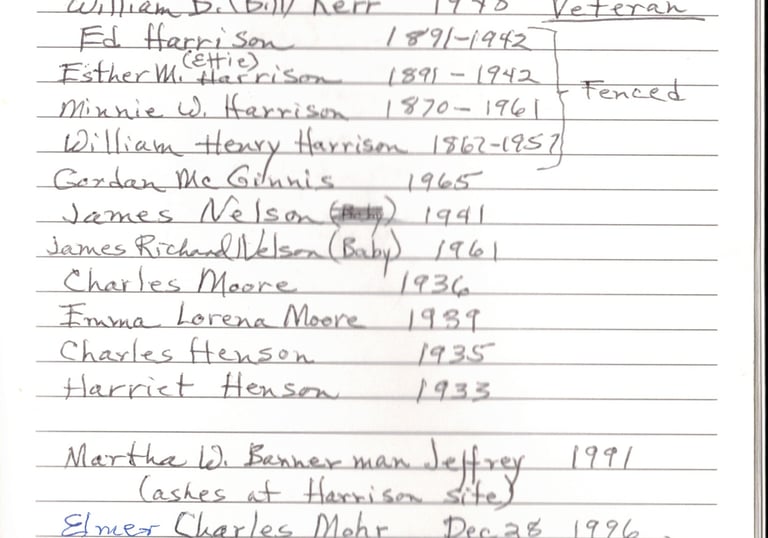 William D. (Bill) Kerr 1940 Veteran
Ed Harrison 1891-1942
(Effie)
Esther M. Harrison 1891 - 1942
Fenced
Minnie W. Harrison 1870 - 1961
William Henry Harrison 1862-1957
Gordan Mc Ginnis 1965
James Nelson 1941
James Richard Nelson (Baby) 1961
Charles Moore 1936
Emma Lorena Moore 1939
Charles Henson 1935
Harriet Henson 1933
Martha W. Bannerman Jeffrey 1991
(ashes at Harrison site)
Elmer Charles Mohr Dec 28 1996